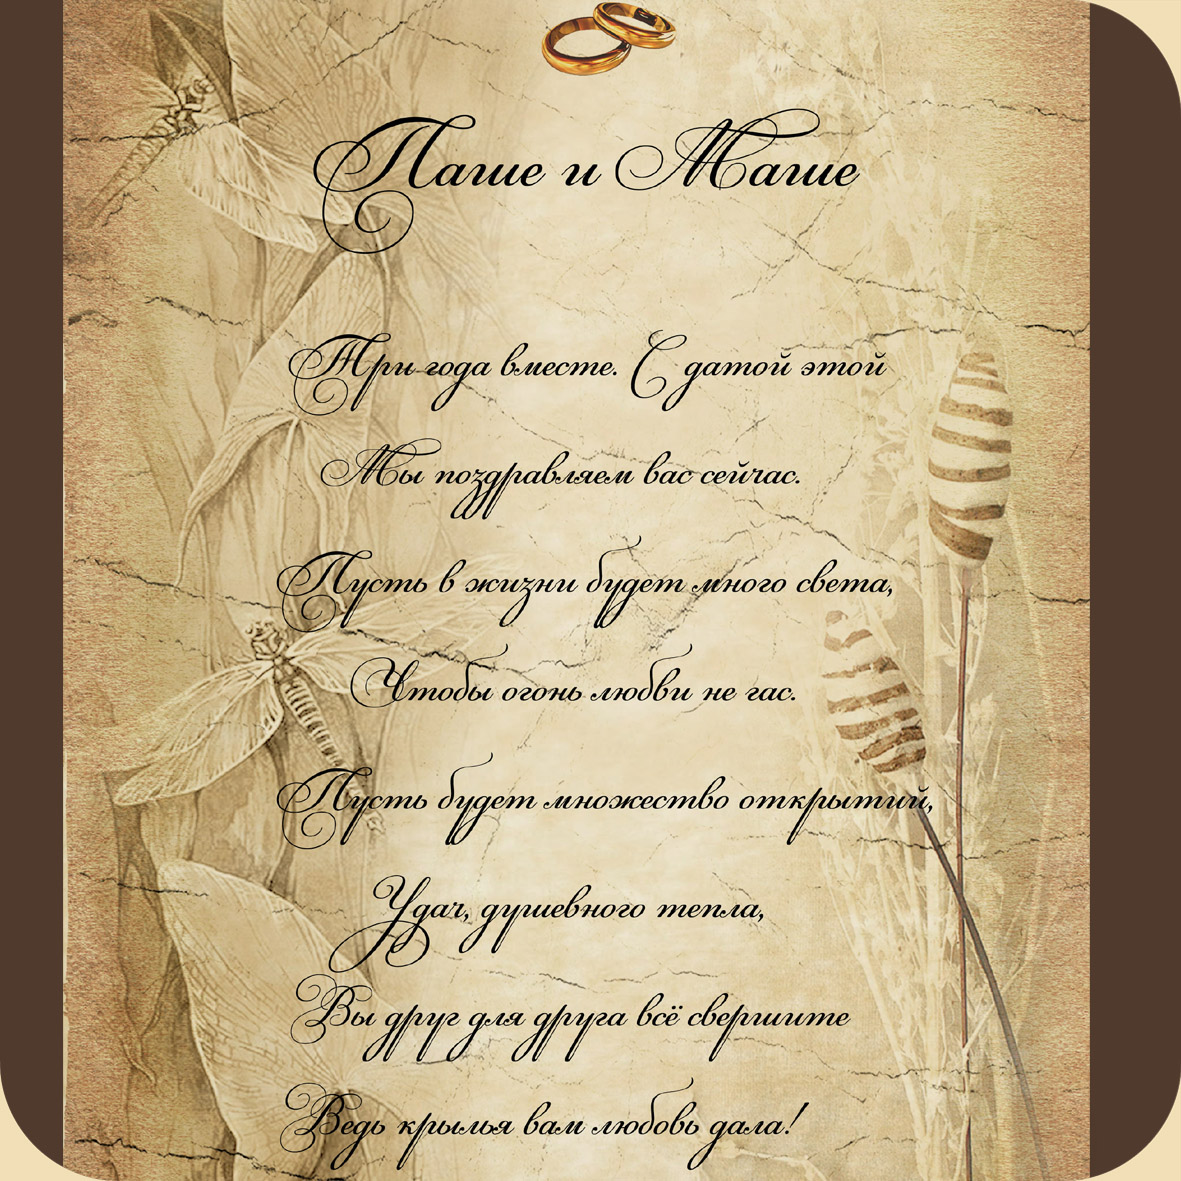 Паше и Маше
Три года вместе. С датой этой
Мы поздравляем вас сейчас.
Пусть в жизни будет много света,
Чтобы огонь любви не гас.
Пусть будет множество открытий,
Удач, душевного тепла,
Вы друг для друга всё свершите
Ведь крылья вам любовь дала!